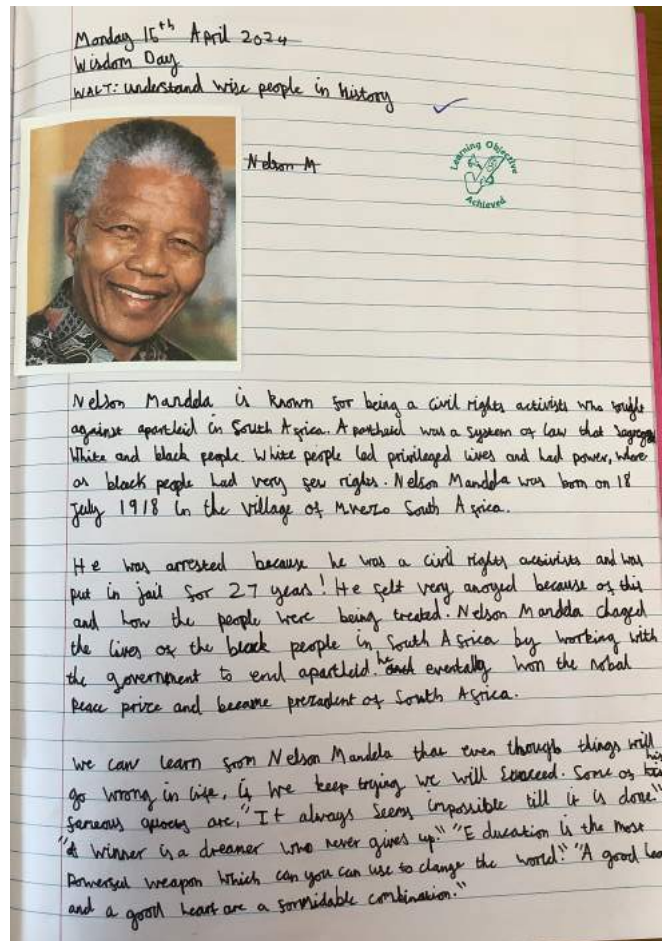 Monday 15th April 2024
Wisdom Day
WALT: understand wise people in history
Nelson M
Learning Objective
Achieved
Nelson Mandela is known for being a civil rights activists who fought
against apartleid in South Africa. Apartheid was a system of law that
White and black people. White people led privileged lives and had power, where
as black people had very few rights. Nelson Mandela was born on 18
July 1918 in the village of Mvezo South Africa.
He was arrested because he was a civil rights activists and was
put in jail for 27 years! He felt very anoyed because of this
and how the people were being treated. Nelson Mandela chaged
the lives of the black people in South Africa by working with
the government to end apartleid. he eventally won the nobal
Peace prize and became prezadent of South Africa.
We can learn from Nelson Mandela that even though things will
go wrong in life, if we keep trying we will succeed. Some of his
fameous are, "It always seems impossible till it is done."
"A winner is a dreamer who never gives up." "Education is the most
Powerful weapon which can you can use to change the world." "A good
and a good heart are a formidable combination."